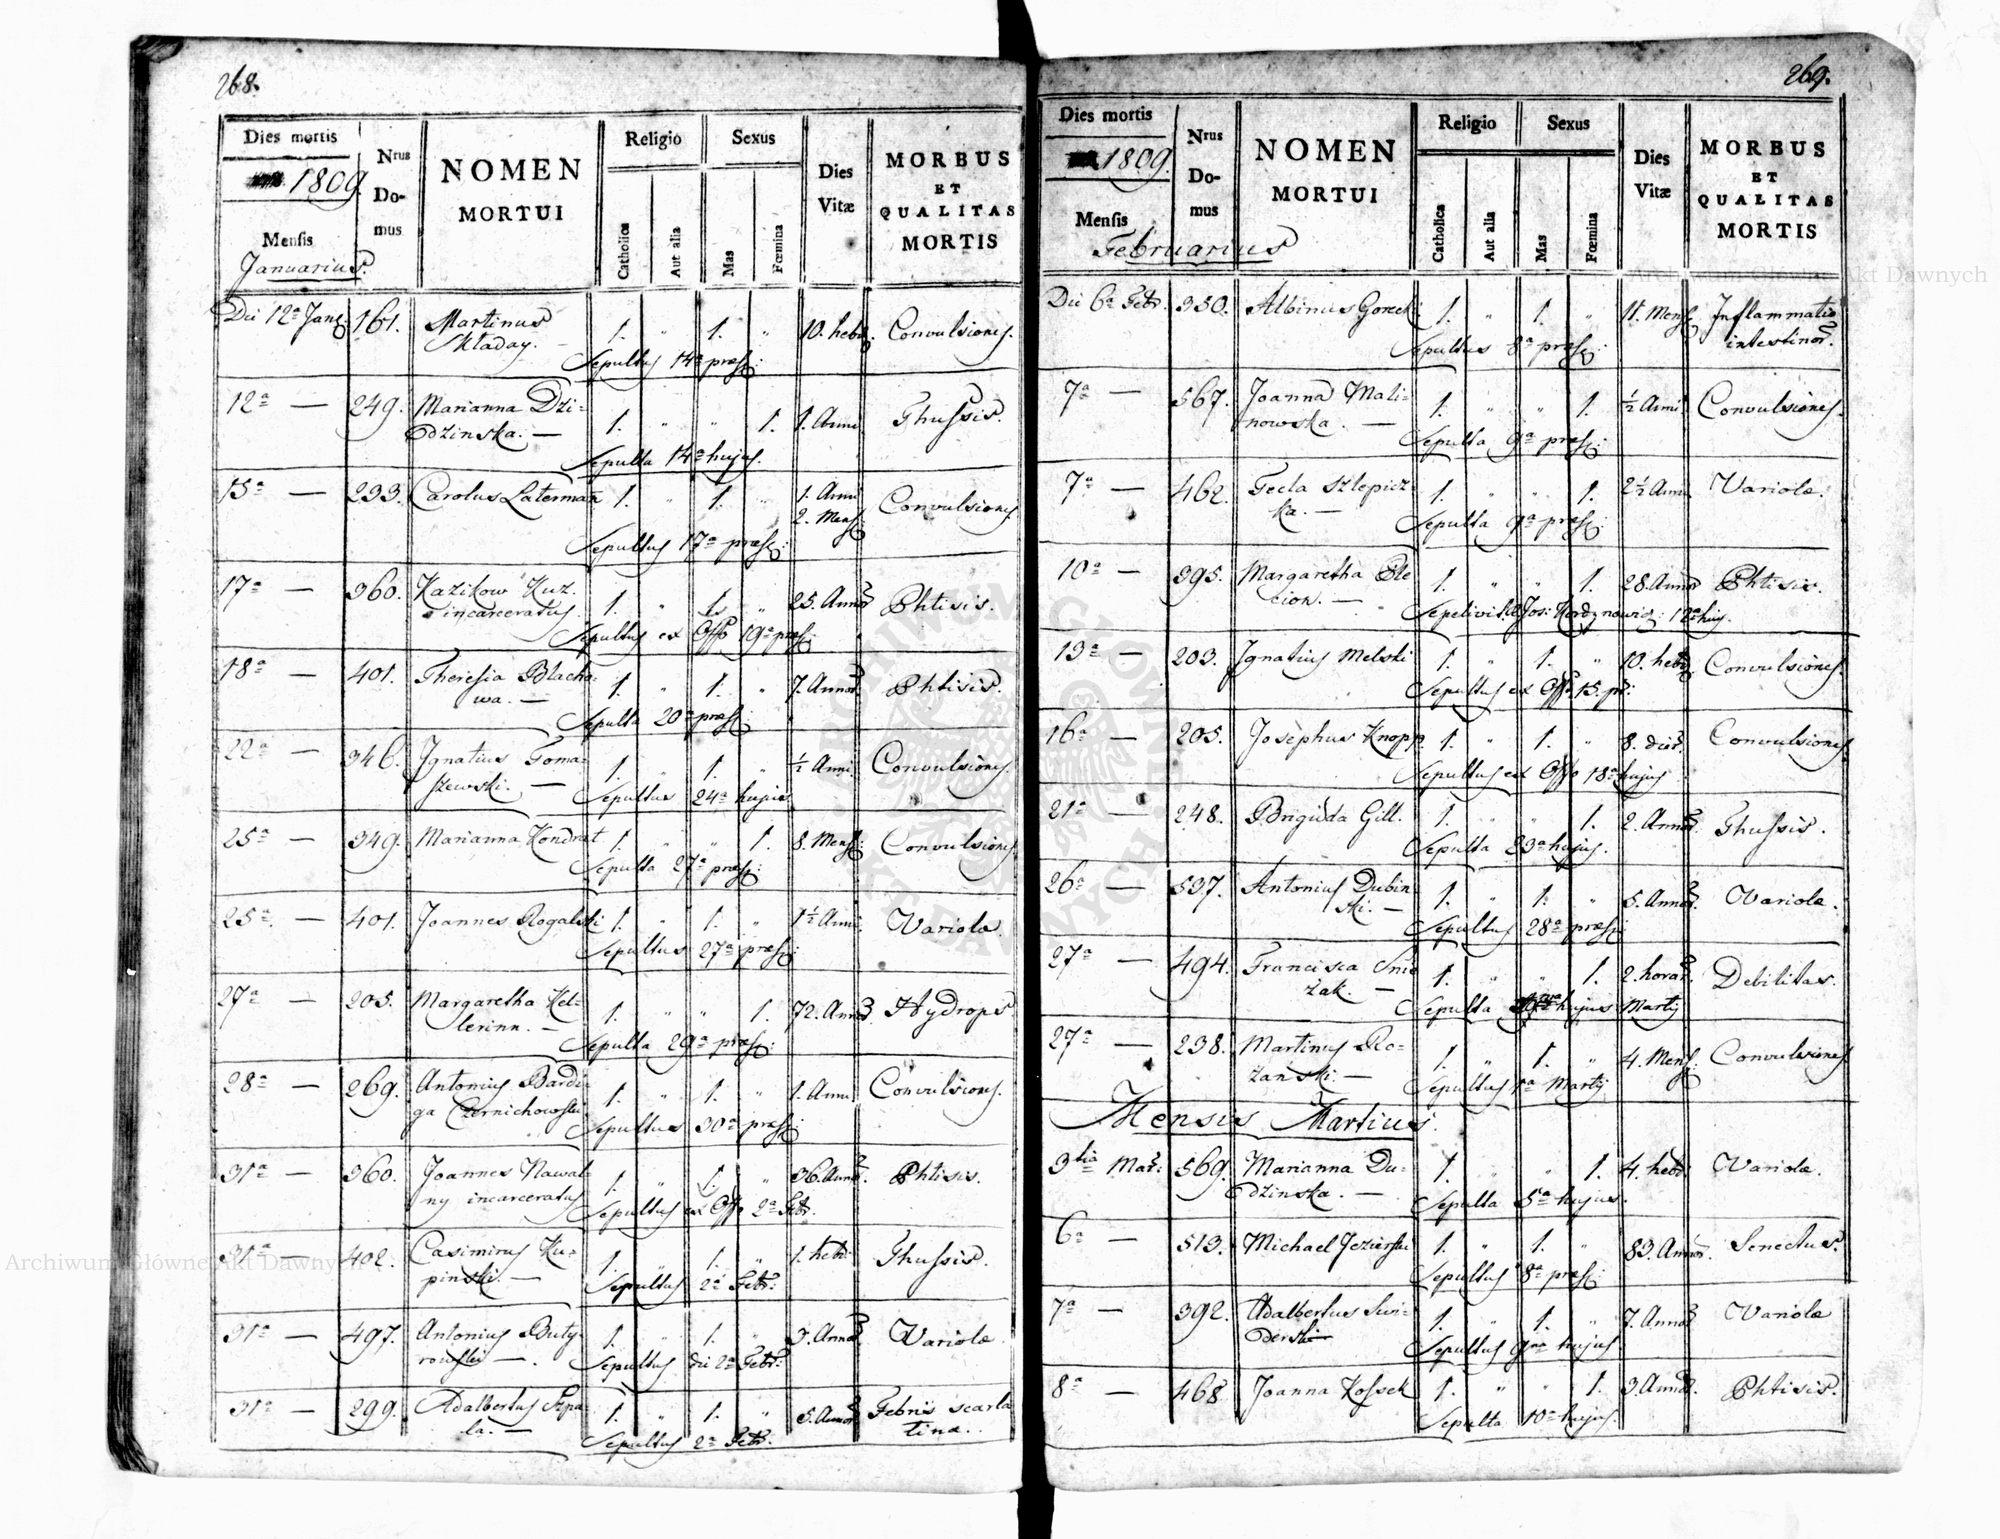 268.
Dies mortis
1809.
Mensis
Januarius.
Nrus
Do-
mus
NOMEN
MORTUI
Religio
Catholica
Aut alia
Sexus
Mas
Fœmina
Dies
Vitæ
MORBUS
ET
QUALITAS
MORTIS
Die 12ª Janij 161. Martinus 1. " 1. " 10. hebd. Convulsiones.
Skladay. —
Sepultus 14ª præs:
12ª — 249. Marianna Dzi- 1. " " 1. 1. Anni Thussis.
dzinska. —
Sepulta 14ª hujus.
15ª — 233. Carolus Laterman 1. " 1. " 1. Anni Convulsiones
2. Mens:
Sepultus 17ª præs:
17ª — 360. Kazikow Kuz. 1. " 1. " 25. Annor Phtisis.
incarceratus.
Sepultus ex Offo 19ª præs:
18ª — 401. Theresia Blacho- 1. " 1. " 7. Annor. Phtisis.
wa. —
Sepulta 20ª præs:
22ª — 346. Ignatius Toma- 1. " 1. " ½ Anni Convulsiones.
szewski. —
Sepultus 24ª hujus
25ª — 349. Marianna Kondrat 1. " " 1. 8. Mens: Convulsiones
Sepulta 27ª præs:
25ª — 401. Joannes Rogalski 1. " 1. " 1½ Anni. Variolæ.
Sepultus 27ª præs:
27ª — 205. Margaretha Kel- 1. " " 1. 72. Annor Hydrops
lerinn. —
Sepulta 29ª præs:
28ª — 269. Antonius Bardi- 1. " 1. " 1. Anni Convulsiones.
ga Czernichowski
Sepultus 30ª præs:
31ª — 360. Joannes Nawal- 1. " 1. " 36. Annor. Phtisis.
ny incarceratus
Sepultus ex Offo 2ª Febr.
31ª — 402. Casimirus Ku- 1. " 1. " 1. hebd: Thussis.
pinski. —
Sepultus 2ª Febr:
31ª — 497. Antonius Buty- 1. " 1. " 3. Annor Variolæ.
rowski —.
Sepultus die 2ª Febr:
31ª — 299. Adalbertus Szpa- 1. " 1. " 5. Annor Febris scarla
la. — tina.
Sepultus 2ª Febr.
269.
Dies mortis
1809.
Mensis
Februarius
Nrus
Do-
mus
NOMEN
MORTUI
Religio
Catholica
Aut alia
Sexus
Mas
Fœmina
Dies
Vitæ
MORBUS
ET
QUALITAS
MORTIS
Die 6ª Febr. 350. Albinus Gorecki 1. " 1. " 11. Mens: Inflammatio
intestinor.
Sepultus 8ª præs:
7ª — 567. Joanna Mali- 1. " " 1. ½ Anni Convulsiones.
nowska. —
Sepulta 9ª præs:
7ª — 462. Tecla Szlepicz- 1. " " 1. 2½ Anni Variolæ.
ka. —
Sepulta 9ª præs:
10ª — 395. Margaretha Ple 1. " " 1. 28. Annor Phtisis.
cion. —
Sepelivit Jos: Kordynowicz 12ª huj.
13ª — 203. Ignatius Melski 1. " 1. " 10. hebd. Convulsiones.
Sepultus ex Offo 15. pr:
16ª — 205. Josephus Knopp. 1. " 1. " 8. dier. Convulsiones
Sepultus ex Offo 18ª hujus
21ª — 248. Brigida Gill. 1. " " 1. 2. Annor. Thussis.
Sepulta 23ª hujus.
26ª — 537. Antonius Dubin 1. " 1. " 5. Annor. Variolæ.
ski. —
Sepultus 28ª præs:
27ª — 494. Francisca Snie 1. " " 1. 2. horar Debilitas.
zak. —
Sepulta hujus Martij
27ª — 238. Martinus Ro- 1. " 1. " 4. Mens: Convulsiones
zanski. —
Sepultus 1ª Martij
Mensis Martius.
3tia Mar: 569. Marianna Du- 1. " " 1. 4. hebd. Variolæ.
dzinska. —
Sepulta 5ª hujus.
6ª — 513. Michael Jezierski 1. " 1. " 83. Annor. Senectus.
Sepultus 8ª præs:
7ª — 392. Adalbertus Swi- 1. " 1. " 7. Annor Variolæ
derski
Sepultus 9na hujus
8ª — 468. Joanna Kossek 1. " " 1. 3. Annor. Phtisis.
Sepulta 10ª hujus.
Archiwum Główne Akt Dawnych
Archiwum Główne Akt Dawnych
ARCHIWUM GŁÓWNE AKT DAWNYCH